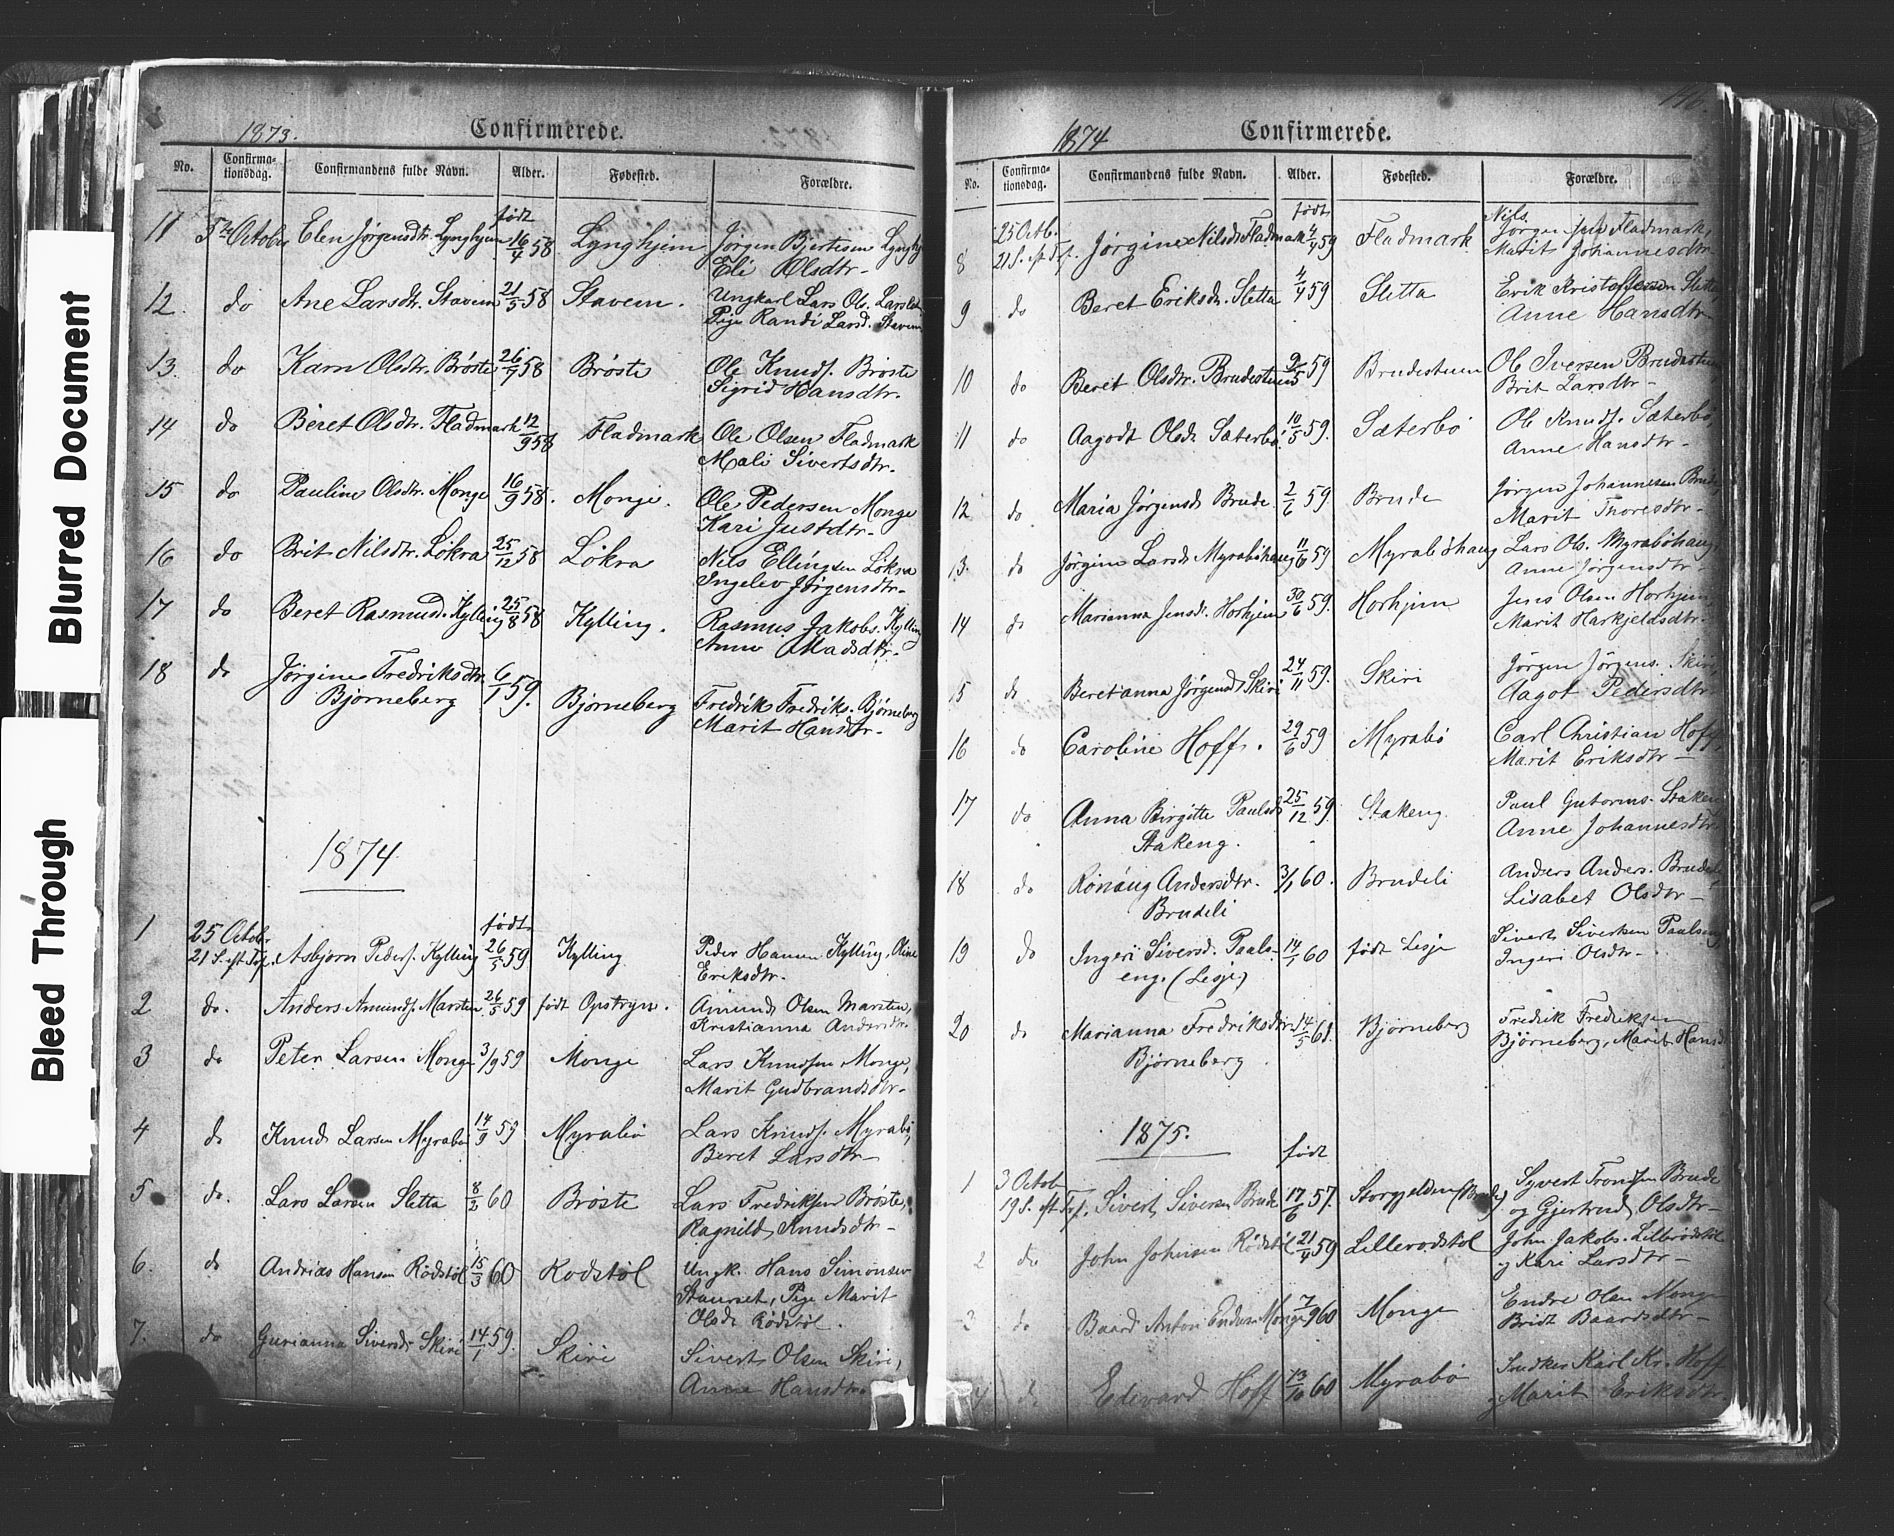 Blurred Document
Bleed Through
1873.
Confirmerede.
No. Confirma-tionsdag. Confirmandens fulde Navn. Alder. Fødested. Forældre.
født
11 5te October Elen Jørgensdtr. Lynghjem 16/4 58 Lynghjem Jørgen Bjertesen Lynghj
Eli Olsdtr.
12. do Ane Larsdtr. Stavem 21/5 58 Stavem. Ungkarl Lars Ols.
Pige Randi Larsd. Stavem
13. do Karn Olsdtr. Brøste 26/7 58 Brøste Ole Knuds. Brøste
Sigrid Hansdtr.
14 do Beret Olsdtr. Fladmark 12/9 58 Fladmark Ole Olsen Fladmark
Mali Sivertsdtr.
15 do Pauline Olsdtr. Monge 16/9 58. Monge. Ole Pedersen Monge
Kari Justdtr.
16 do Brit Nilsdtr. Løkra 25/12 58 Løkra Nils Ellingsen Løkra
Ingelev Jørgensdtr.
17 do Beret Rasmusd. Kylling 25/8 58 Kylling. Rasmus Jakobs. Kylling
Anne Madsdtr.
18 do Jørgine Fredriksdtr.
Bjørneberg 6/1 59. Bjørneberg Fredrik Fredriks. Bjørneberg
Marit Hansdtr.
1874
født
1 25 Octobr
21 S. eft Tr. Asbjørn Peders. Kylling 26/5 59 Kylling Peder Hansen Kylling, Oline
Eriksdtr.
2 do. Anders Amunds. Marsten 26/5 59 født Opstryn. Amund Olsen Marsten,
Kristianna Andersdtr.
3 do Peter Larsen Monge 3/9 59 Monge Lars Knudsen Monge,
Marit Gudbrandsdtr.
4 do Knud Larsen Myrabø 14/9 59 Myrabø Lars Knuds. Myrabø,
Beret Larsdtr
5 do. Lars Larsen Sletta 8/2 60 Brøste Lars Fredriksen Brøste,
Ragnild Knudsdtr
6. do Andrias Hansen Rødstøl 15/3 60 Rødstøl Ungk. Hans Simonsen
Staurset, Pige Marit
Olsdr Rødstøl.
7. do Gurianna Siversdr Skiri 14/1 59. Skiri Sivert Olsen Skiri,
Anne Hansdtr.
1874
Confirmerede.
No. Confirma-tionsdag. Confirmandens fulde Navn. Alder. Fødested. Forældre.
født
8 25 Octb.
21 S. eft Tr. Jørgine Nilsd. Fladmark 4/4 59 Fladmark Nils
Fladmark,
Marit Johannesdtr
9 do Beret Eriksdr. Sletta 4/4 59 Sletta Erik Kristoffersen Sletta
Anne Hansdtr
10 do Beret Olsdtr. Brudestuen 9/5 59 Brudestuen Ole Iversen Brudestuen
Brit Larsdtr
11 do Aagodt Olsdr Sæterbø 10/5 59. Sæterbø Ole Knuds. Sæterbø,
Anne Hansdtr
12 do Maria Jørgensdr Brude 2/6 59 Brude Jørgen Johannesen Brude
Marit Thoresdtr
13. do Jørgine Larsdr Myrabøhaug 11/6 59 Myrabøhaug Lars Ols. Myrabøhaug
Anne Jørgensdtr
14 do Marianna Jensd. Horhjem 30/6 59. Horhjem Jens Olsen Horhjem
Marit Harkjeldsdtr.
15 do Beretanna Jørgensdr Skiri 24/11 59. Skiri Jørgen Jørgens. Skiri,
Aagot Pedersdtr
16 do Caroline Hoff. 29/6 59 Myrabø Carl Christian Hoff,
Marit Eriksdtr
17 do Anna Birgitte Paulsdr
Stakeng. 25/12 59. Stakeng. Paul Gutorms. Stakeng
Anne Johannesdtr
18 do Rønaug Andersdtr.
Brudeli 3/1 60. Brudeli Anders Anders. Brudeli,
Lisabet Olsdtr
19 do Ingeri Siversd. Pauls-
eng. (Lesje) 14/1 60 født Lesje Sivert Sivertsen Paulseng
Ingeri Olsdtr.
20 do Marianna Fredriksdtr
Bjørneberg 14/5 60. Bjørneberg Fredrik Fredriksen
Bjørneberg, Marit Hansd
1875.
født
1 3 Octob
19 S. eft Tr. Sivert Siversen Brude 17/6 57. (Brude) Syvert Tronsen Brude
og Gjertrud Olsdtr
2 do John Johnsen Rødstøl 21/4 59 Lillerødstøl John Jakobs. Lillerødstøl
og Kari Larsdtr
3 do Baard Anton Endresen Monge 7/9 60 Monge Endre Olsen Monge
Bridt Baardsdtr
4 do Edevard Hoff 13/10 60 Myrabø Snedker Karl Kr. Hoff
og Marit Eriksdtr.